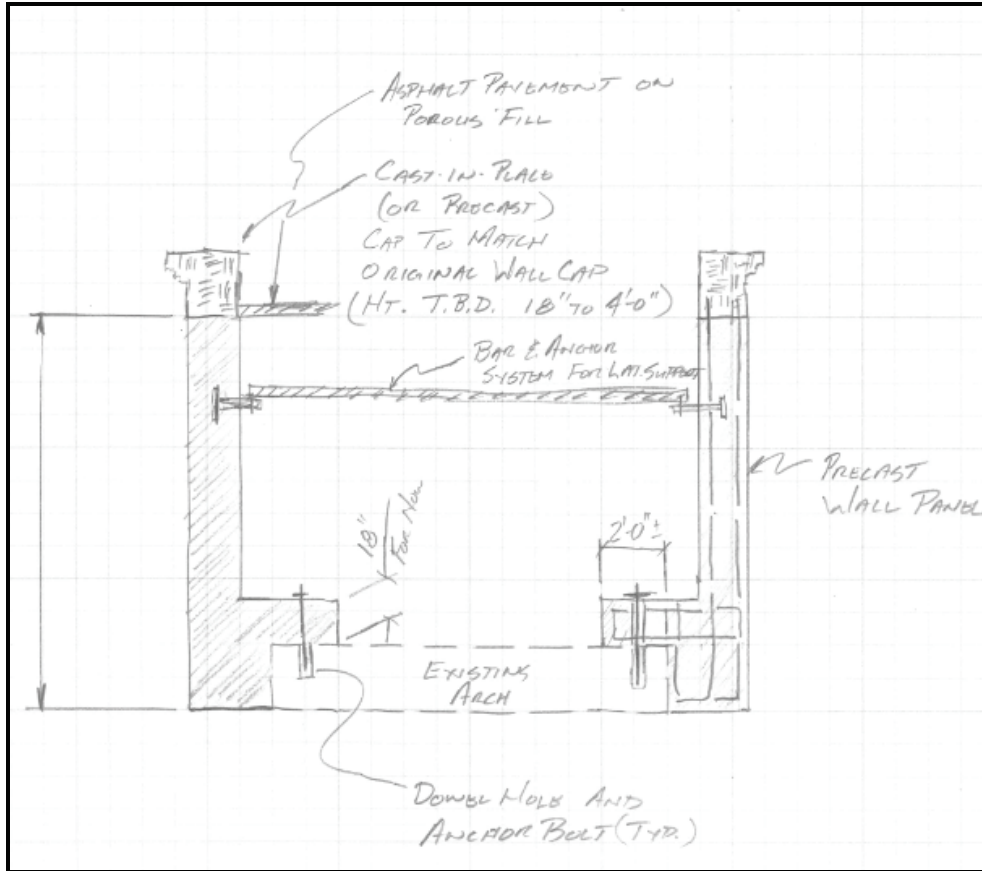 ASPHALT PAVEMENT ON
POROUS FILL
CAST-IN-PLACE
(OR PRECAST)
CAP TO MATCH
ORIGINAL WALL CAP
(HT. T.B.D. 18" TO 4'-0")
BAR & ANCHOR
SYSTEM FOR LAT. SUPPORT
PRECAST
WALL PANEL
18"
FOR NOW
2'-0" ±
EXISTING
ARCH
DOWEL HOLE AND
ANCHOR BOLT (TYP.)